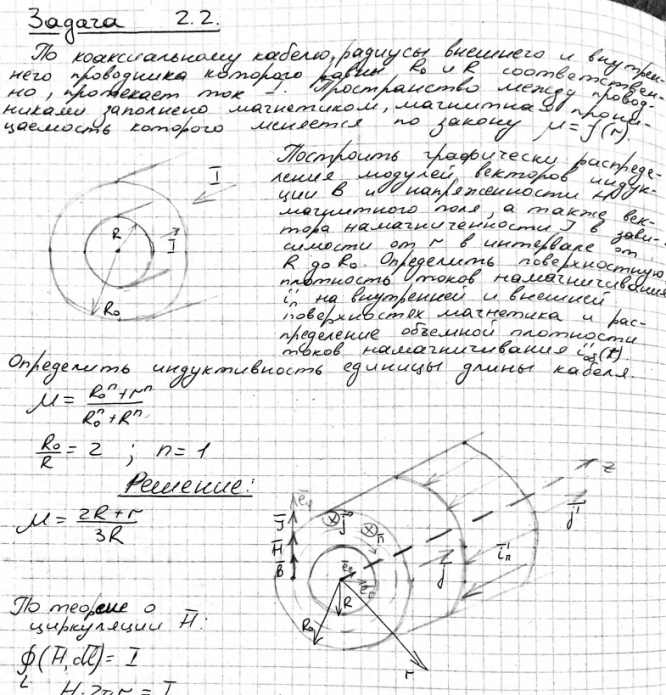 Задача 2.2.
По коаксиальному кабелю, радиусы внешнего и внутрен-
него проводника которого равны R₀ и R соответствен-
но, протекает ток I. Пространство между провод-
никами заполнено магнетиком, магнитная прони-
цаемость которого меняется по закону μ=f(r).
Построить графически распреде-
ления модулей векторов индук-
ции B и напряженности H
магнитного поля, а также век-
тора намагниченности J в зави-
симости от r в интервале от
R до R₀. Определить поверхностную
плотность токов намагничивания
i'ₙ на внутренней и внешней
поверхностях магнетика и рас-
пределение объемной плотности
токов намагничивания i'об(r).
Определить индуктивность единицы длины кабеля.
R
I
I
R₀
μ = (R₀ⁿ+rⁿ)/(R₀ⁿ+Rⁿ)
R₀/R = 2 ; n = 1
Решение:
μ = (2R+r)/(3R)
J
H
B
R
R₀
r
z
j'
i'ₙ
По теореме о
циркуляции H̄:
∮(H̄, dl̄) = I
L
H·2πr = I